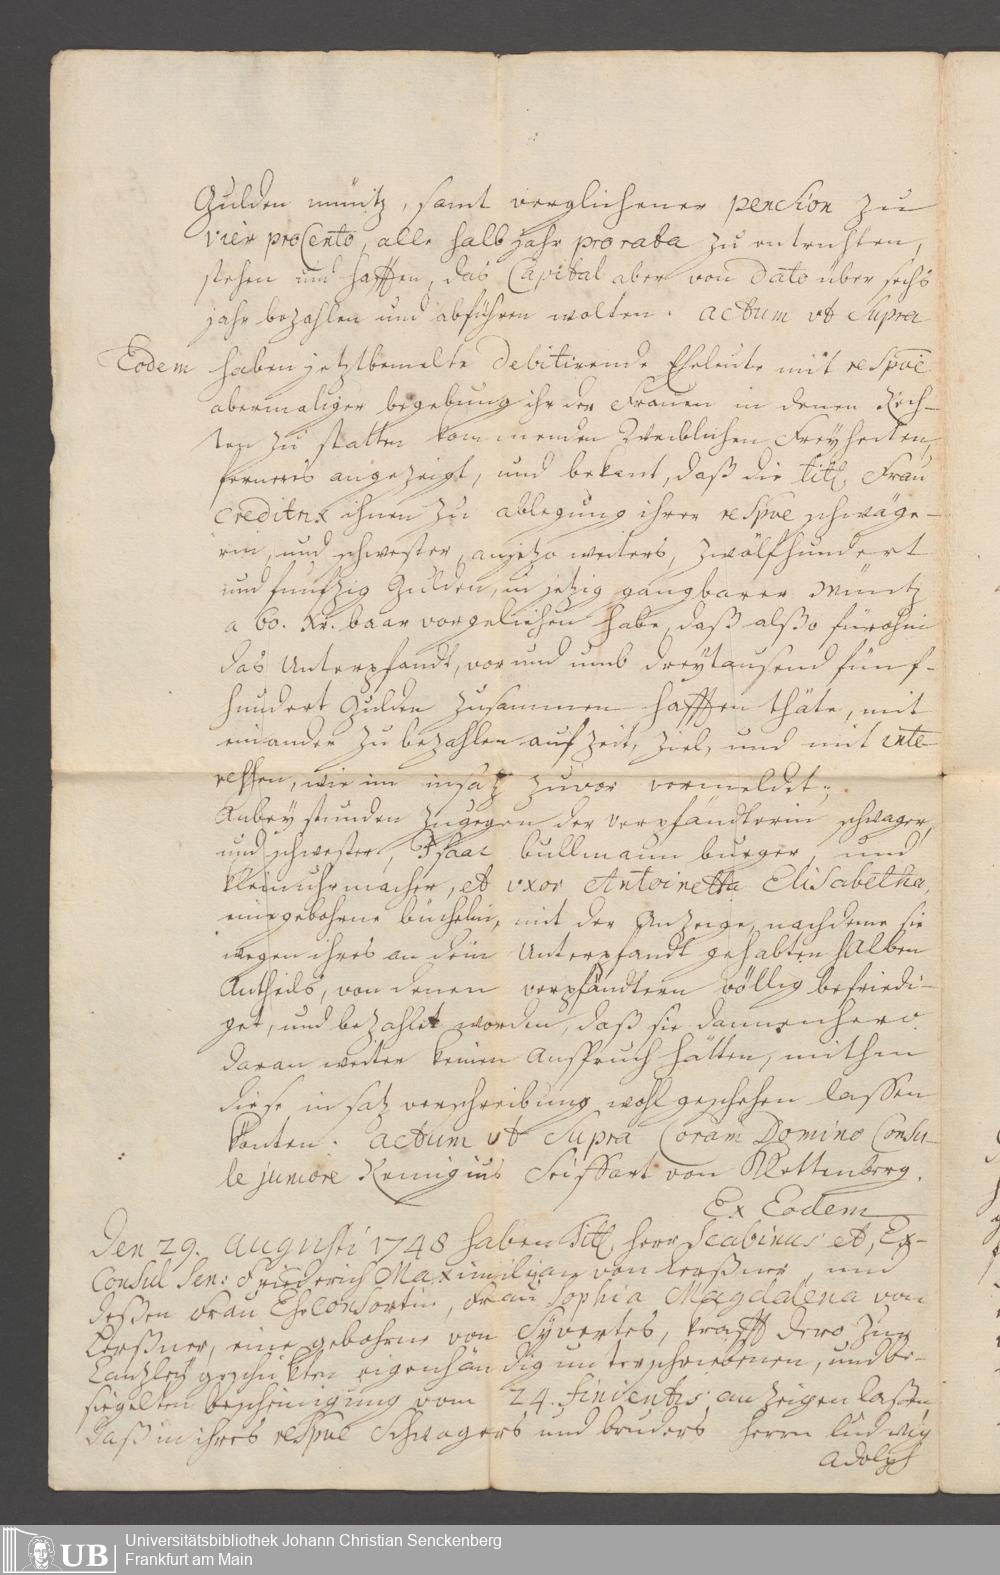 Gulden müntz, samt verglichener pension zu
vier proCento, alle halb jahr pro rata zu entrichten,
stehen und hafften, das Capital aber von dato über sechs
jahr bezahlen und abführen wolten. actum ut Supra
Eodem haben jetztbemelte debitirende Eheleute mit respvè
abermaliger begebung ihr der Frauen in denen Rech-
ten zu statten kommenden Weiblichen Freyheiten,
ferners angezeigt, und bekant, daß die titl. Frau
Creditrix ihnen zu ablegung ihrer respve schwäge-
rin, und schwester, anjetzo weiters, zwölfhundert
und funfzig Gulden, in jetzig gangbarer Müntz
a 60. Xr. baar vorgeliehen habe, daß alßo fürohin
das Unterpfandt, vor und umb dreytausend fünf-
hundert Gulden zusammen hafften thäte, mit
einander zu bezahlen auf Zeit, Ziel, und mit inte-
ressen, wie im insatz zuvor vermeldet;
Anbey stunden zugegen der Verpfändterin schwager,
und schwester, Isaac bullmann burger, und
kleinuhrmacher, et uxor Antoinetta Elisabetha,
eine gebohrne büchelin, mit der Anzeige, nachdeme sie
wegen ihres an dem Unterpfandt gehabten halben
Antheils, von denen verpfändtern völlig befriedi-
get, und bezahlet worden, daß sie dannenhero
daran weiter keinen Anspruch hätten, mithin
diese insatz verschreibung wohl geschehen lassen
könten. actum ut Supra Coram Domino Consu-
le juniore Remigius Seiffart von Klettenberg.
Ex Eodem
Den 29. augusti 1748 haben Titl. herr Scabinus et, Ex-
Consul Sen: Friederich Maximilian von Lerßner, und
deßen Frau EheConsortin, Frau Sophia Magdalena von
Lerßner, eine gebohrne von Syvertes, krafft dero zur
Cantzley geschickten eigenhändig unterschriebenen, und be-
siegelten bescheinigung vom 24. finientis anzeigen laßen,
daß in ihres respve Schwagers und bruders herrn Ludwig
Adolph
Universitätsbibliothek Johann Christian Senckenberg
Frankfurt am Main
UB